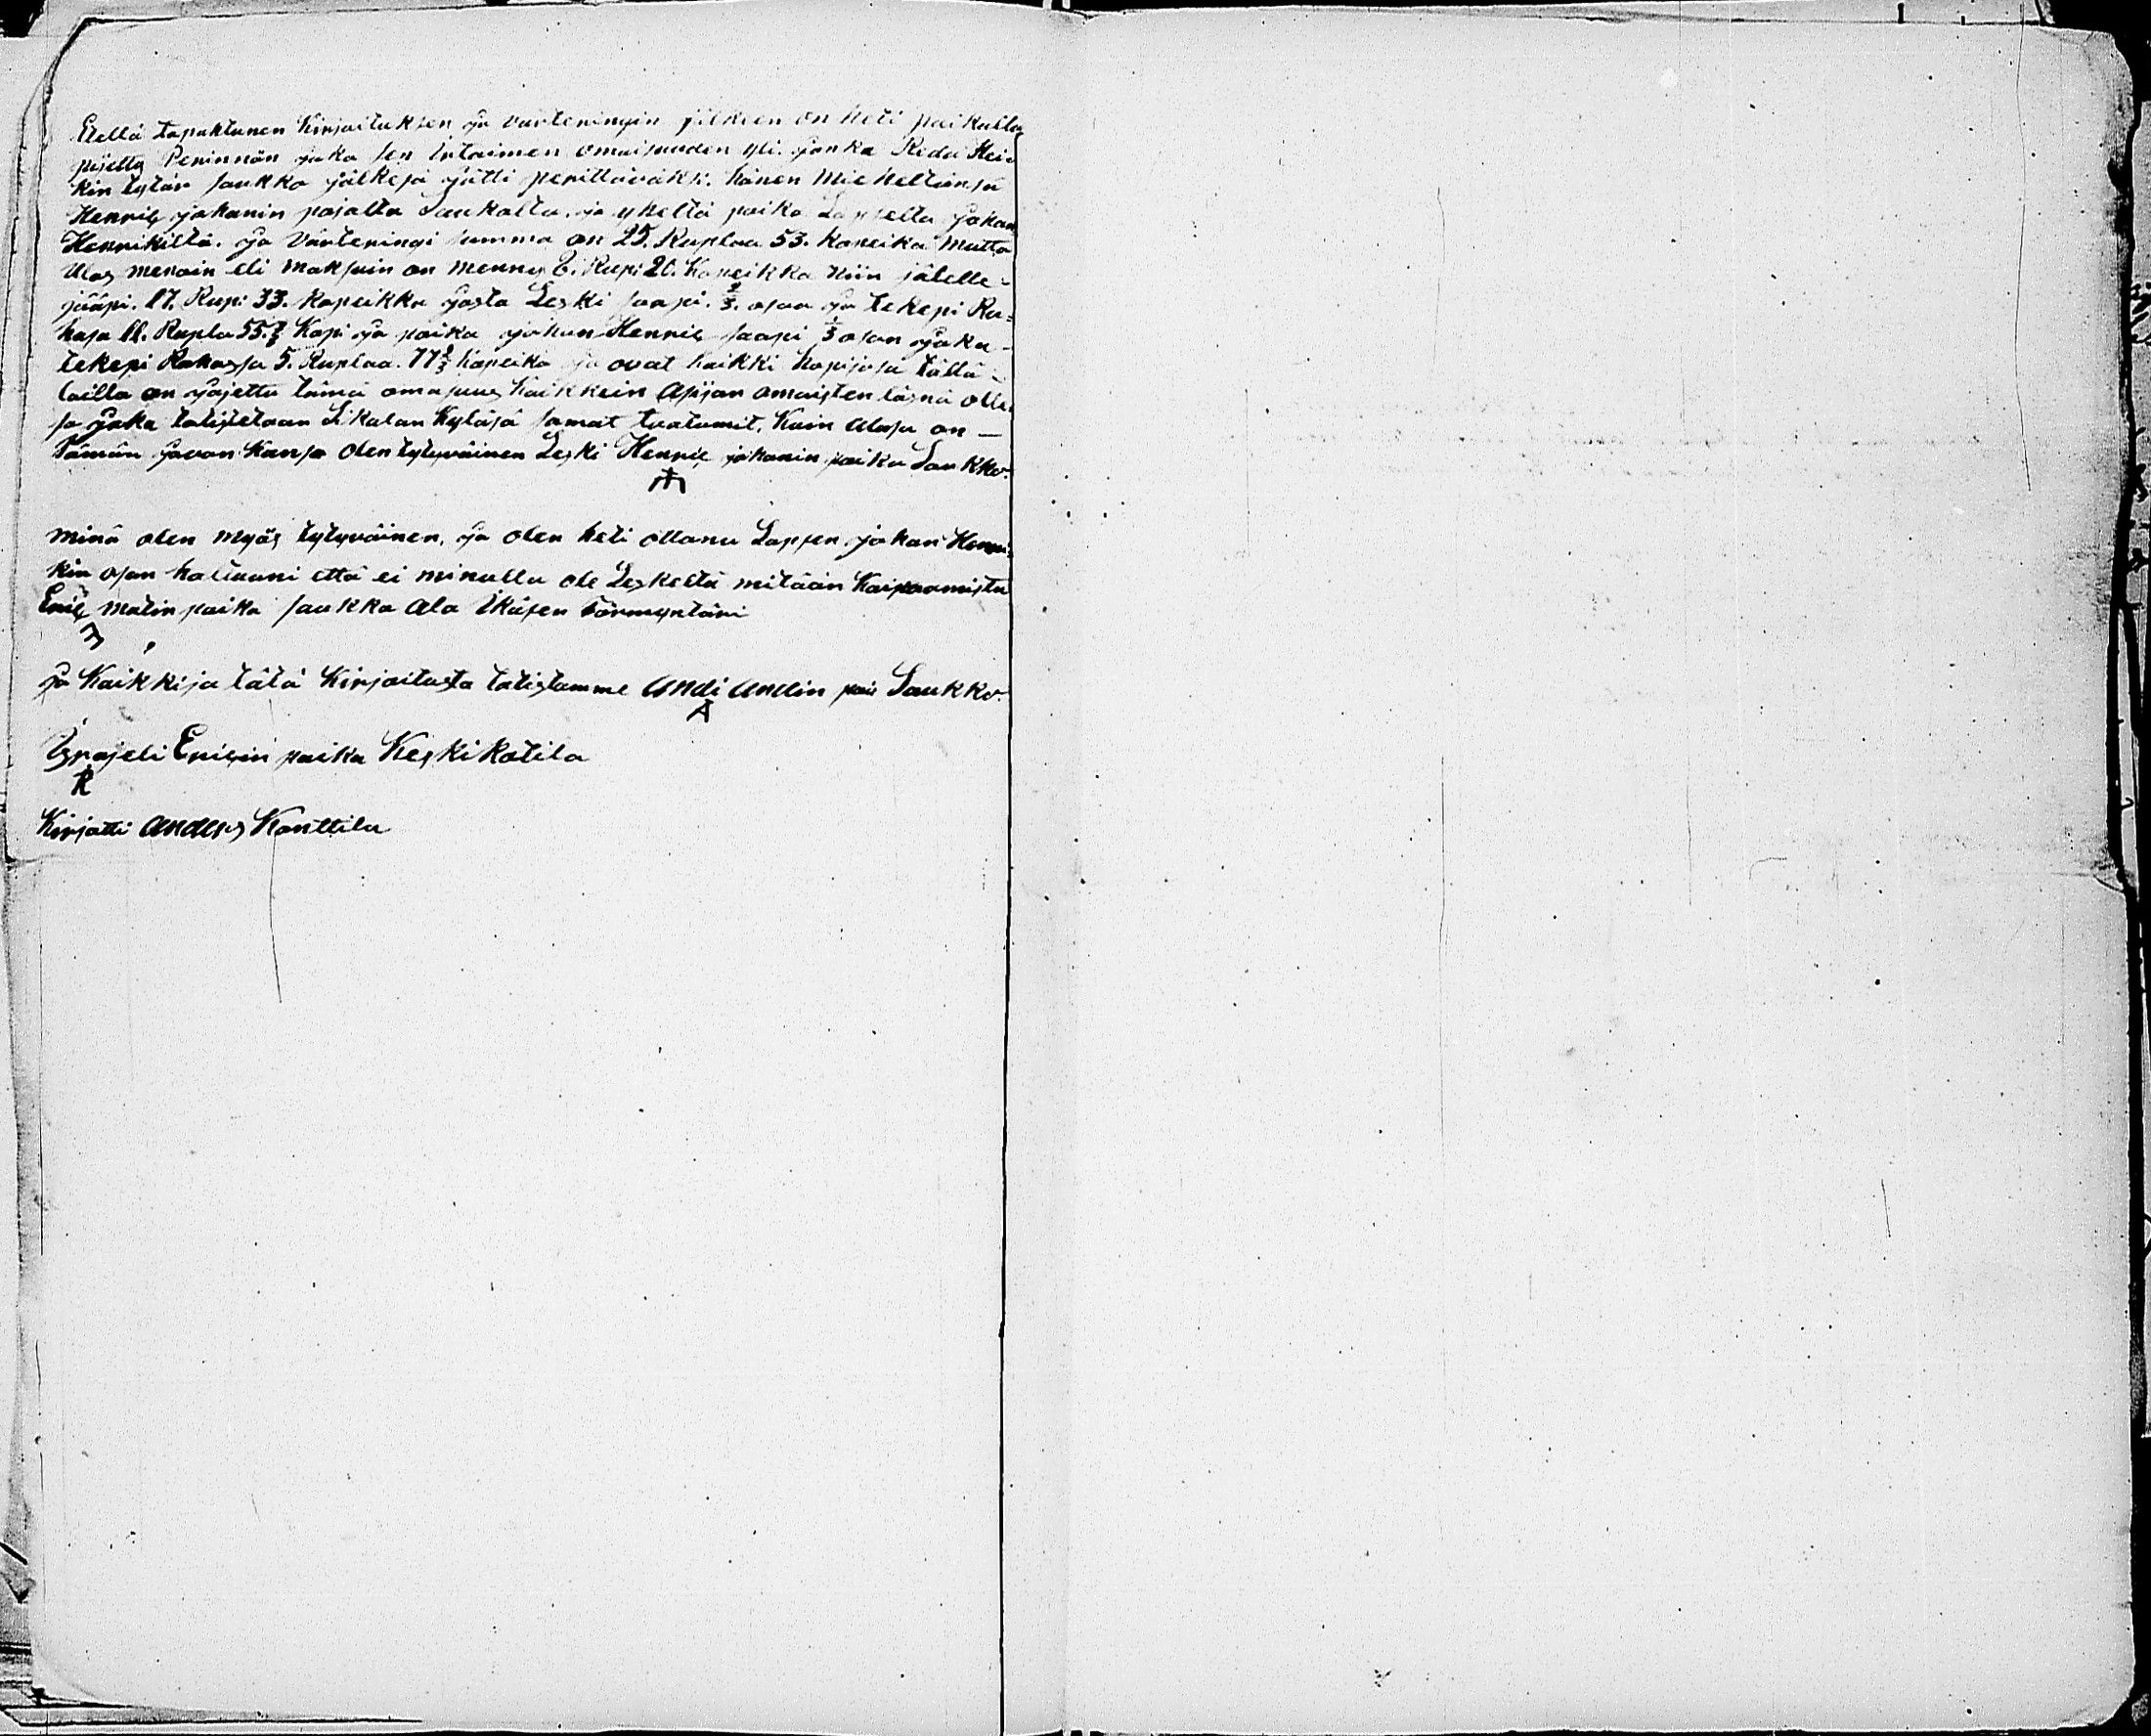 Edellä tapahtunen Kirjoituksen ja värteringin jälkeen on heti paikalla
pijetty Perinnön jako sen irtaimen omaisuuden yli. jonka Reda Hei-
kin tytär saukko jälkesä jätti perittäväksi. hänen mieheltänsä
Henric johanin pojalta Saukolta. ja yheltä poika Lapselta johan
Henrikiltä. ja värteringi summa on 25. Ruplaa 53. kopeika mutta
Ulos menoin eli maksuin on mennyt 8. Rupi 20. Kopeikka niin jälelle-
jääpi. 17. Rupi 33. kopeikka josta Leski saapi. 2/3. osaa ja tekepi Ra=
hasa 11. Rupla 55.⅓ Kopi ja poika johan Henric saapi 1/3 osan joka-
tekepi Rahassa 5. Ruplaa. 77⅔ kopeika ja ovat kaikki hopijosa tällä-
lailla on jajettu tämä omasuus kaikkein Asijan omaisten läsnä olle-
sa joka totistetaan Likalan Kyläsä samat tvatumit, Kuin Alasa on —
Tämän javon kansa olen tytyväinen Leski Henric johanin poika Saukko.
minä olen myös tytyväinen, ja olen heti ottanu Lapsen johan Henri-
kin osan haltuuni että ei minulla ole Leskeltä mitään kaipaamista
Eric matin poika saukko ala ikäsen Förmyntäri
E
ja Kaikki ja tätä kirjoitusta totistamme Andi Andin poi Saukko.
A
Israjeli Ericin poika Keskikotila
K
Kirjotti Anders Konttila